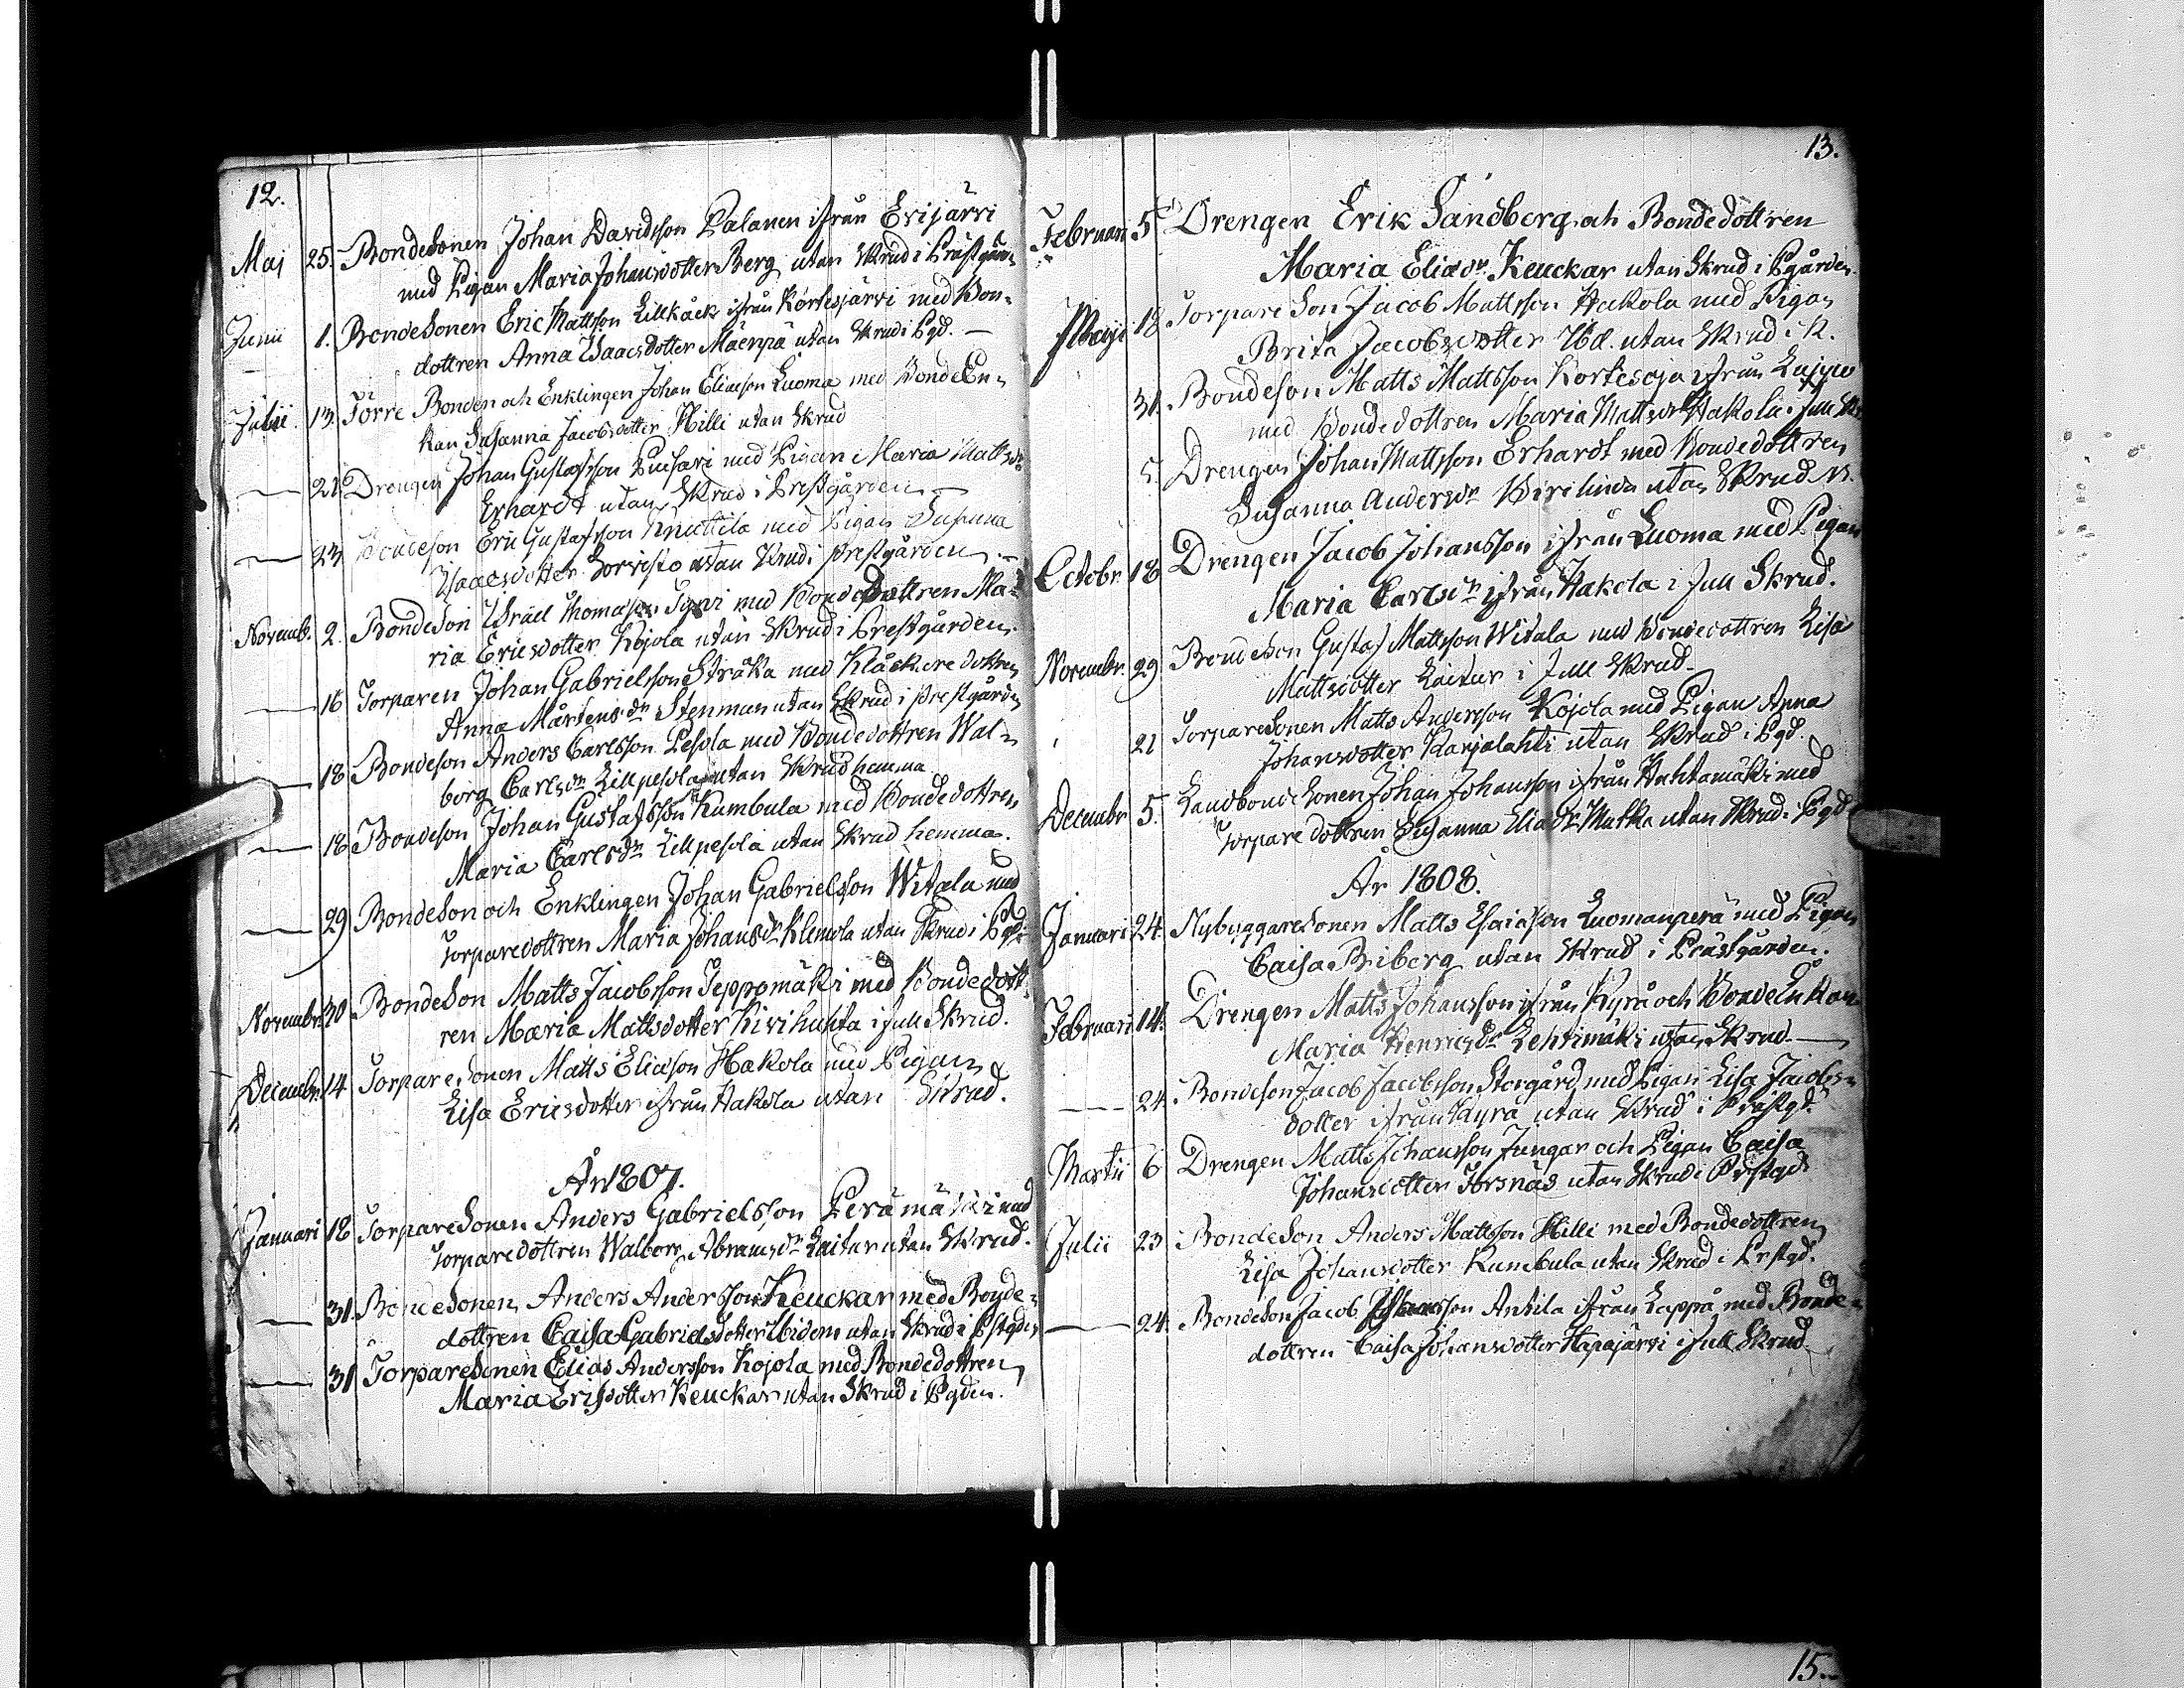 12.
Maj 25. Bondesonen Johan Davidsson Palanen ifrån Evijärvi
med Pigan Maria Johansdotter Berg utan Skrud i Prästgårn
Junii 1. Bondesonen Eric Mattsson Lillkåck ifrån Kortesjärvi med Bon-
dottren Anna Isaacsdotter Mäenpä utan Skrud i Pgd. —
Julii 13. Förre Bonden och Enklingen Johan Eliasson Luoma med BondeEn-
kan Susanna Jacobsdotter Hilli utan Skrud
— 21 Drengen Johan Gustafsson Puusari med Pigan Maria Mattsdr
Erhardt utan Skrud i Prestgården —
— 23 Bondeson Eric Gustafsson Knuttila med Pigan Susanna
Isaacsdotter Sorvisto utan Skrud i prestgården —
Novemb. 2. Bondeson Israel Thomasson Tyni med Bondedottren Ma-
ria Ericsdotter Kojola utan Skrud i Prestgården.
— 16 Torparen Johan Gabrielsson Stråka med Klåckare dottren
Anna Mårtensdr Stenman utan Skrud i prestgården
— 18 Bondeson Anders Carlsson Pesola med Bondedottren Wal-
borg Carlsdr Lillpesola utan Skrud hemma
— 18 Bondeson Johan Gustafsson Kumbula med Bondedottren
Maria Carlsdr Lillpesola utan Skrud hemma.
— 29 Bondeson och Enklingen Johan Gabrielsson Witala med
Torparedottren Maria Johansdr Klemola utan Skrud i Pgd.
Novembr. 30 Bondeson Matts Jacobsson Teppomäki med Bondedott-
ren Maria Mattsdotter Kivihuhta i full Skrud.
Decembr. 14 Torparesonen Matts Eliasson Hakola med Pigan
Lisa Ericsdotter ifrån Hakola utan Skrud.
År 1807.
Januari 18 Torparesonen Anders Gabrielsson Perämäki med
Torparedottren Walborg Abramsdr Kaitar utan Skrud.
— 31. Bondesonen Anders Andersson Keuckar med Bonde-
dottren Caisa Gabrielsdotter Ibidem utan Skrud i Pstgden
— 31 Torparesonen Elias Andersson Kojola med Bondedottren
Maria Erisdotter Keuckar utan Skrud i Pgden.
13.
Februari 5 Drengen Erik Sandberg och Bondedottren
Maria Eliædr. Keuckar utan Skrud i Pgården.
Maji 18 Torpare Son Jacob Mattsson Hakola med Pigan
Brita Jacobsdotter Ibd. utan Skrud i K.
31. Bondeson Matts Mattsson Kortesoja ifrån Lappo
med Bondedottren Maria Mattsdr Hakola i full Skr
5. Drengen Johan Mattsson Erhardt med Bondedottren
Susanna Andersdr Kirilinda utan Skrud
Octobr. 18 Drengen Jacob Johansson ifrån Luoma med Pigan
Maria Carlsdr ifrån Hakola i full Skrud.
Novembr. 29 Bondeson Gustaf Mattsson Witala med Bondedottren Lisa
Mattsdotter Kaitar i full Skrud.
21 Torparesonen Matts Andersson Kojola med Pigan Anna
Johansdotter Karjalahti utan Skrud i Pgd.
Decembr 5. Landbondsonen Johan Johansson ifrån Huhtamäki med
Torpare dottren Susanna Eliædr Mutka utan Skrud i Pgd
År 1808.
Januari 24. Nybyggaresonen Matts Esaiasson Luomanperä med Pigan
Caisa Briberg utan Skrud i Prästgården.
Februari 14. Drengen Matts Johansson ifrån Kyrå och BondeEnkan
Maria Henricsdr Lehtimäki utan Skrud —
— 24. Bondeson Jacob Jacobsson Storgård med Pigan Lisa Jacobs-
dotter ifrån Kyrå utan Skrud i Prästgd.
Martii 6 Drengen Matts Johansson Jungar och Pigan Caisa
Johansdotter Forsnäs utan Skrud i Prstgd
Julii 23 Bondeson Anders Mattsson Hilli med Bondedottren
Lisa Johansdotter Kumbula utan Skrud i Prstgd.
— 24. Bondeson Jacob Johansson Antila ifrån Lappå med Bonde-
dottren Caisa Johansdotter Hapajärvi i full Skrud.
15.